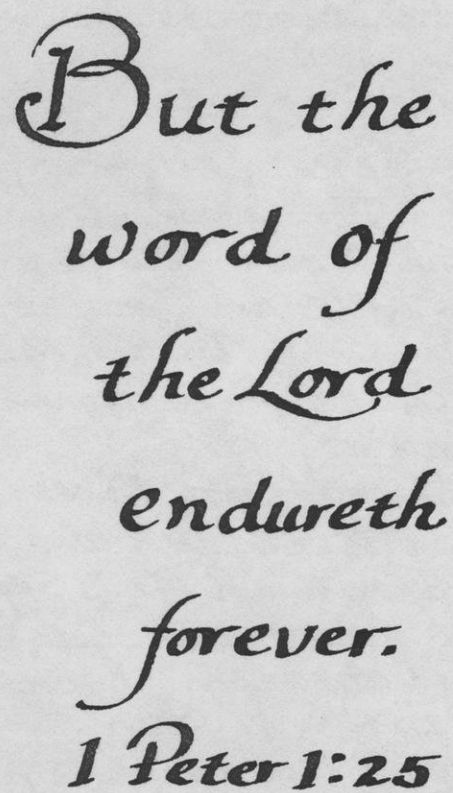 But the
word of
the Lord
endureth
forever.
1 Peter 1:25